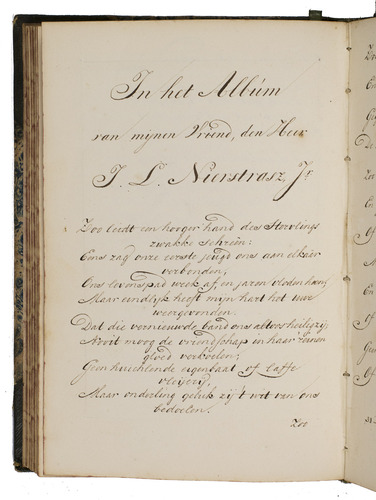 In het Album
van mijnen Vriend, den Heer
J. L. Nierstrasz, Jr.
Zoo leidt een hooger hand des Stervlings
zwakke schreên:
Eens zag onze eerste jeugd ons aan elkaêr
verbonden,
Ons levenspad week af, en jaren vloden heen,
Maar eindlijk heeft mijn hart het uwe
weergevonden.
Dat die vernieuwde band ons altoos heilig zij,
Nooit moog de vriendschap in haar reinen
gloed verkoelen,
Geen huichlende eigenbaat of laffe
vleijerij,
Maar onderling geluk zij 't wit van ons
bedoelen.
Zoo